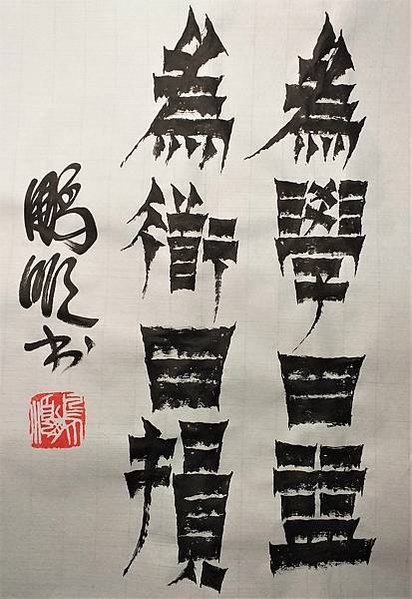 為學日益
為衜日損
鵬順书